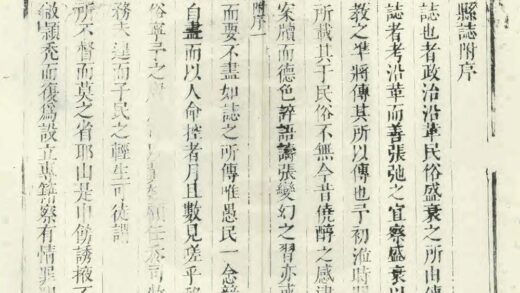 縣誌附序
誌也者政治沿革民俗盛衰之所由傳
誌者考沿革而善張弛之宜察盛衰以
教之準將傳其所以傳也予初蒞時
所載其于民俗不無今昔僥醇之感
案牘而德色誶語譸張變幻之習亦
附序 一
而要不盡如誌之所傳唯愚民一念
自盡而以人命控者月且數見嗟乎
俗
務未遑而子民之輕生可徒謂
所不督而莫之省耶山是申飭誘掖不
禿而復爲設立專簿察有情罪